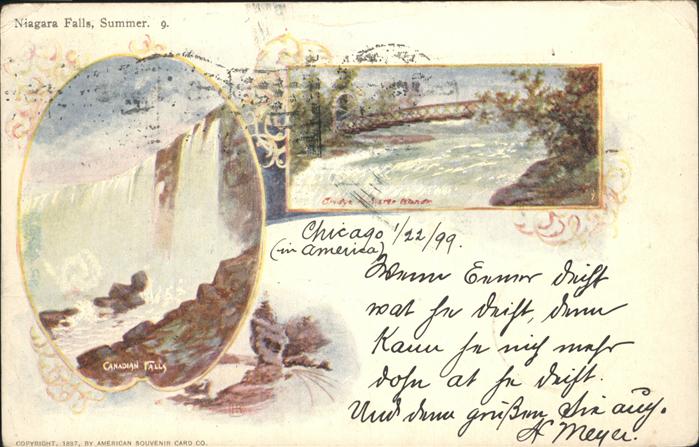 Niagara Falls, Summer. 9.
Bridge Sister Island
Chicago 1/22/99.
(in America)
Wenn Eener deiht
wat he deiht, denn
Kann he nich mehr
dohn as he deiht.
Und denn grüßen Sie auch.
H Meyer.
CANADIAN FALLS
COPYRIGHT, 1897, BY AMERICAN SOUVENIR CARD CO.